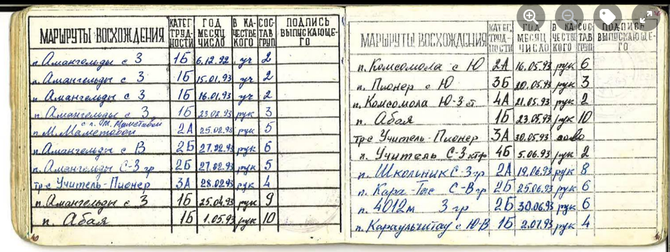 МАРШРУТЫ ВОСХОЖДЕНИЯ КАТЕГ. ТРУД-НОСТИ ГОД МЕСЯЦ ЧИСЛО В КА-ЧЕСТВЕ КОГО СОС-ТАВ ГРУП ПОДПИСЬ ВЫПУСКАЮЩЕ-ГО
п. Амангельды с З 1Б 6.12.92 уч 2
п. Амангельды с З 1Б 15.01.93 уч 2
п. Амангельды с З 1Б 16.01.93 уч 2
п. Амангельды с З 1Б 23.02.93 рук 3
п. М. Маметовой 2А 25.02.93 рук 5
п. Амангельды с В 2Б 27.02.93 рук 6
п. Амангельды С-З гр 2Б 27.02.93 рук 5
тр-с Учитель-Пионер 3А 28.02.93 рук 4
п. Амангельды с З 1Б 25.04.93 рук 9
п. Абая 1Б 1.05.93 рук 10
МАРШРУТЫ ВОСХОЖДЕНИЯ КАТЕГ. ТРУД-НОСТИ ГОД МЕСЯЦ ЧИСЛО В КА ЧЕСТВЕ КОГО СОС ТАВ ГРУП ПОДПИСЬ ВЫПУСКАЮЩЕ-ГО
п. Комсомола с Ю 2А 16.05.93 рук 6
п. Пионер с Ю 3Б 20.05.93 рук 3
п. Комсомола Ю-З ст. 4А 21.05.93 рук 2
п. Абая 1Б 23.05.93 рук 10
тр-с Учитель-Пионер 3А 30.05.93 соло
п. Учитель С-З ктф 4Б 5.06.93 рук 2
п. Школьник С-З гр 2А 19.06.93 рук 8
п. Кара-Тас С-В гр 2Б 25.06.93 рук 6
п. 4012м З гр 2Б 30.06.93 рук 6
п. Караульчитау с Ю-В 1Б 2.07.93 рук 4